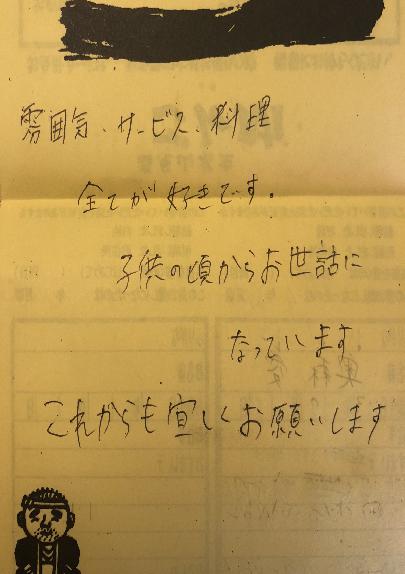 雰囲気、サービス、料理
全てが好きです。
子供の頃からお世話に
なっています
これからも宜しくお願いします